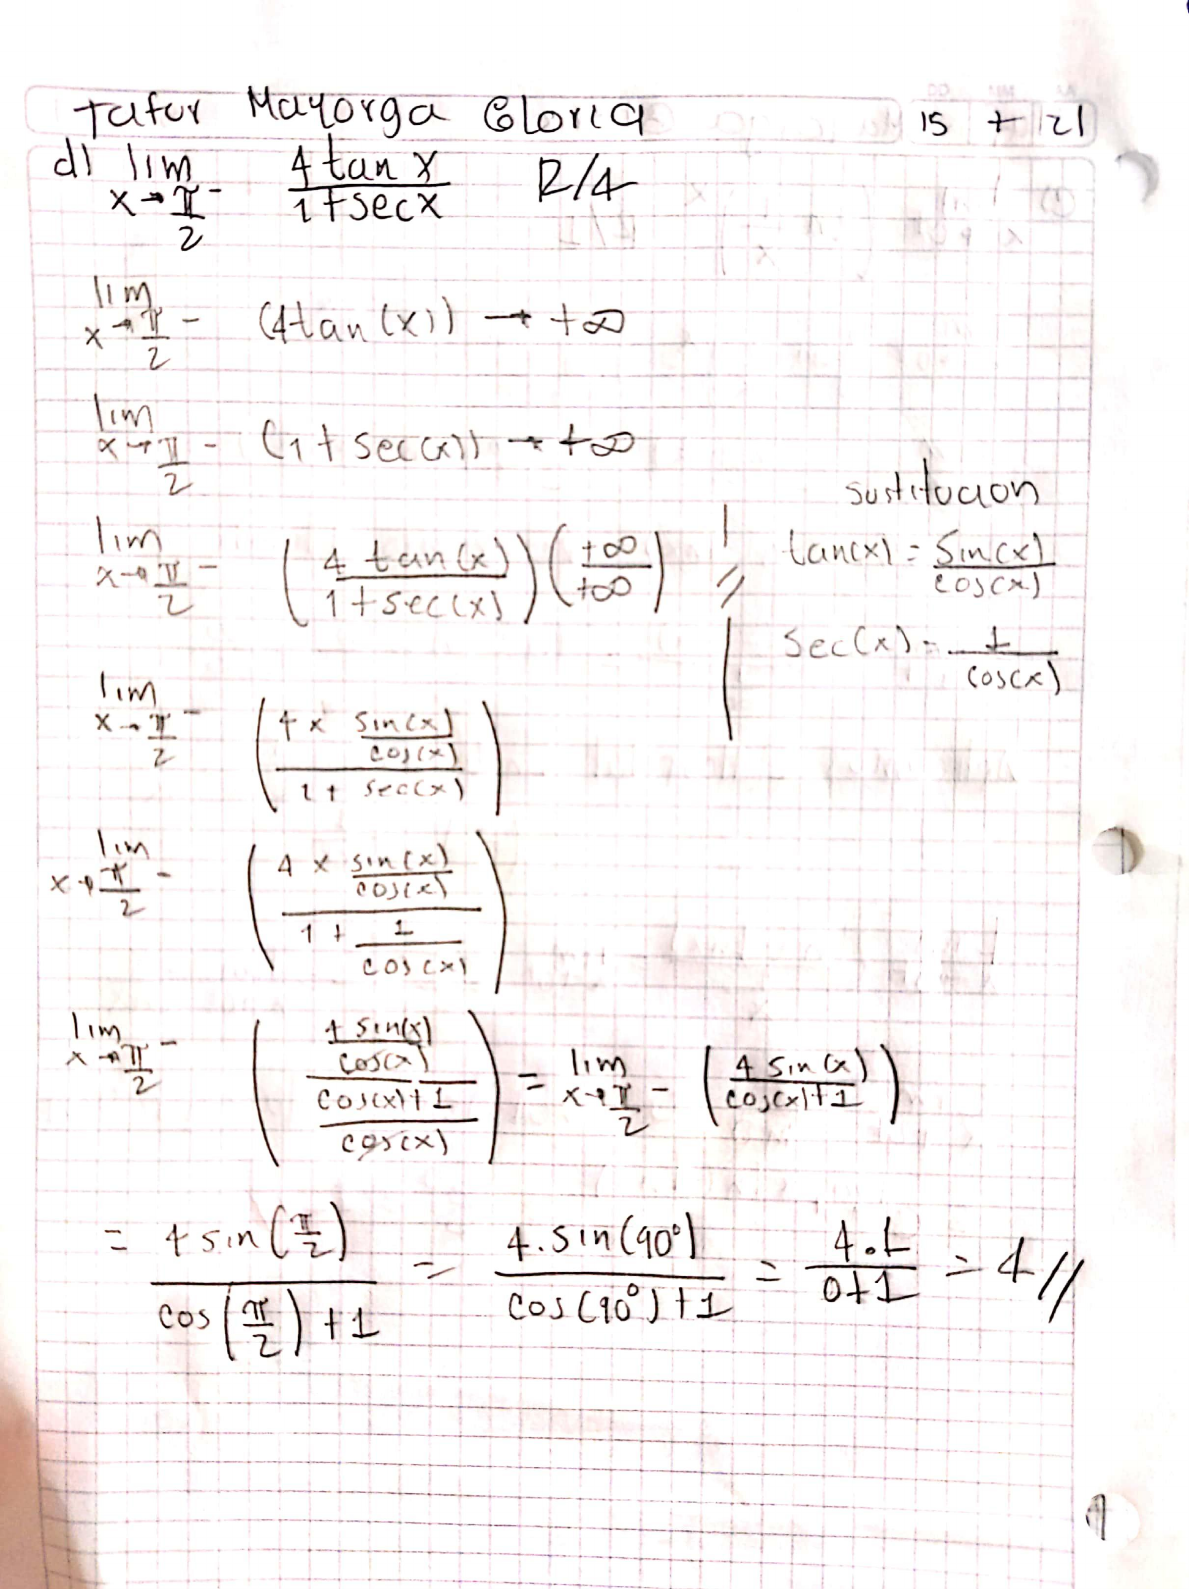 Tafur Mayorga Gloria 15 7 21
d) lim x→π/2⁻ 4 tan x / 1+sec x R/4
lim x→π/2⁻ (4tan(x)) → +∞
lim x→π/2⁻ (1+sec(x)) → +∞
lim x→π/2⁻ (4 tan(x) / 1+sec(x)) (+∞/+∞)
sustitucion
tan(x) = sin(x)/cos(x)
sec(x) = 1/cos(x)
lim x→π/2⁻ (4 × sin(x)/cos(x) / 1+sec(x))
lim x→π/2⁻ (4 × sin(x)/cos(x) / 1+ 1/cos(x))
lim x→π/2⁻ (4 sin(x)/cos(x) / cos(x)+1/cos(x)) = lim x→π/2⁻ (4 sin(x) / cos(x)+1)
= 4 sin(π/2) / cos(π/2)+1 = 4.sin(90°) / cos(90°)+1 = 4.1 / 0+1 = 4//